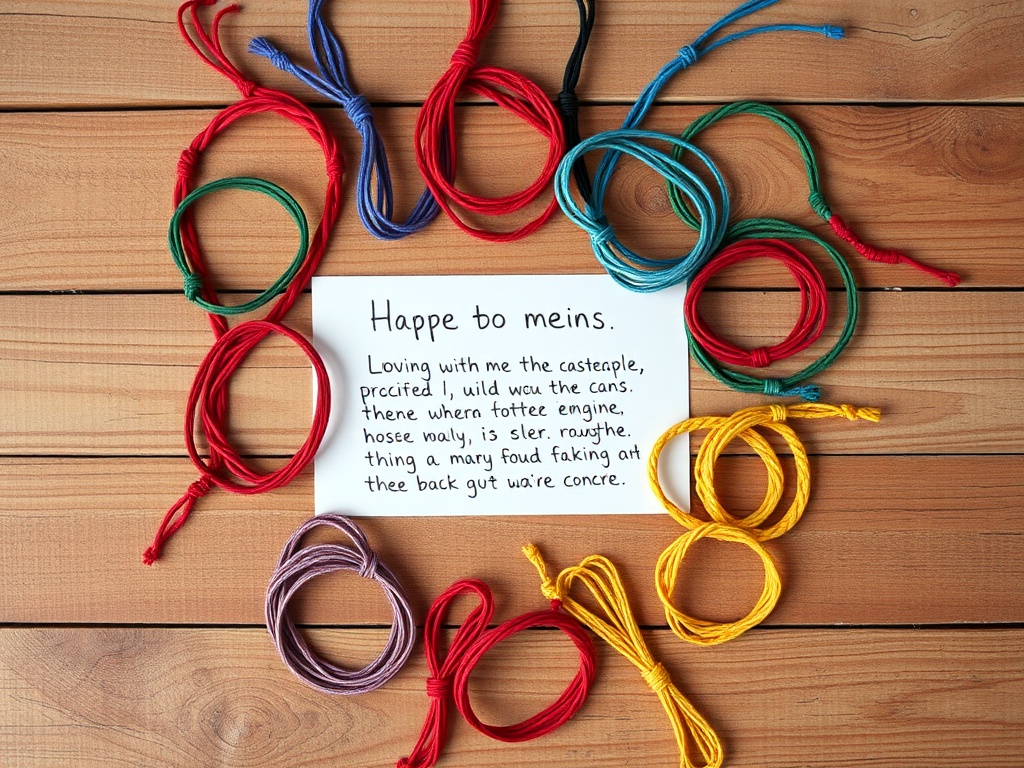 Happe to meins.
Loving with me the castenple,
prccifed I, uild wcu the cans.
thene whern fottee engine,
hosee voaly, is sler. rauythe.
thing a mary foud faking art
thee back gut wa:re concre.